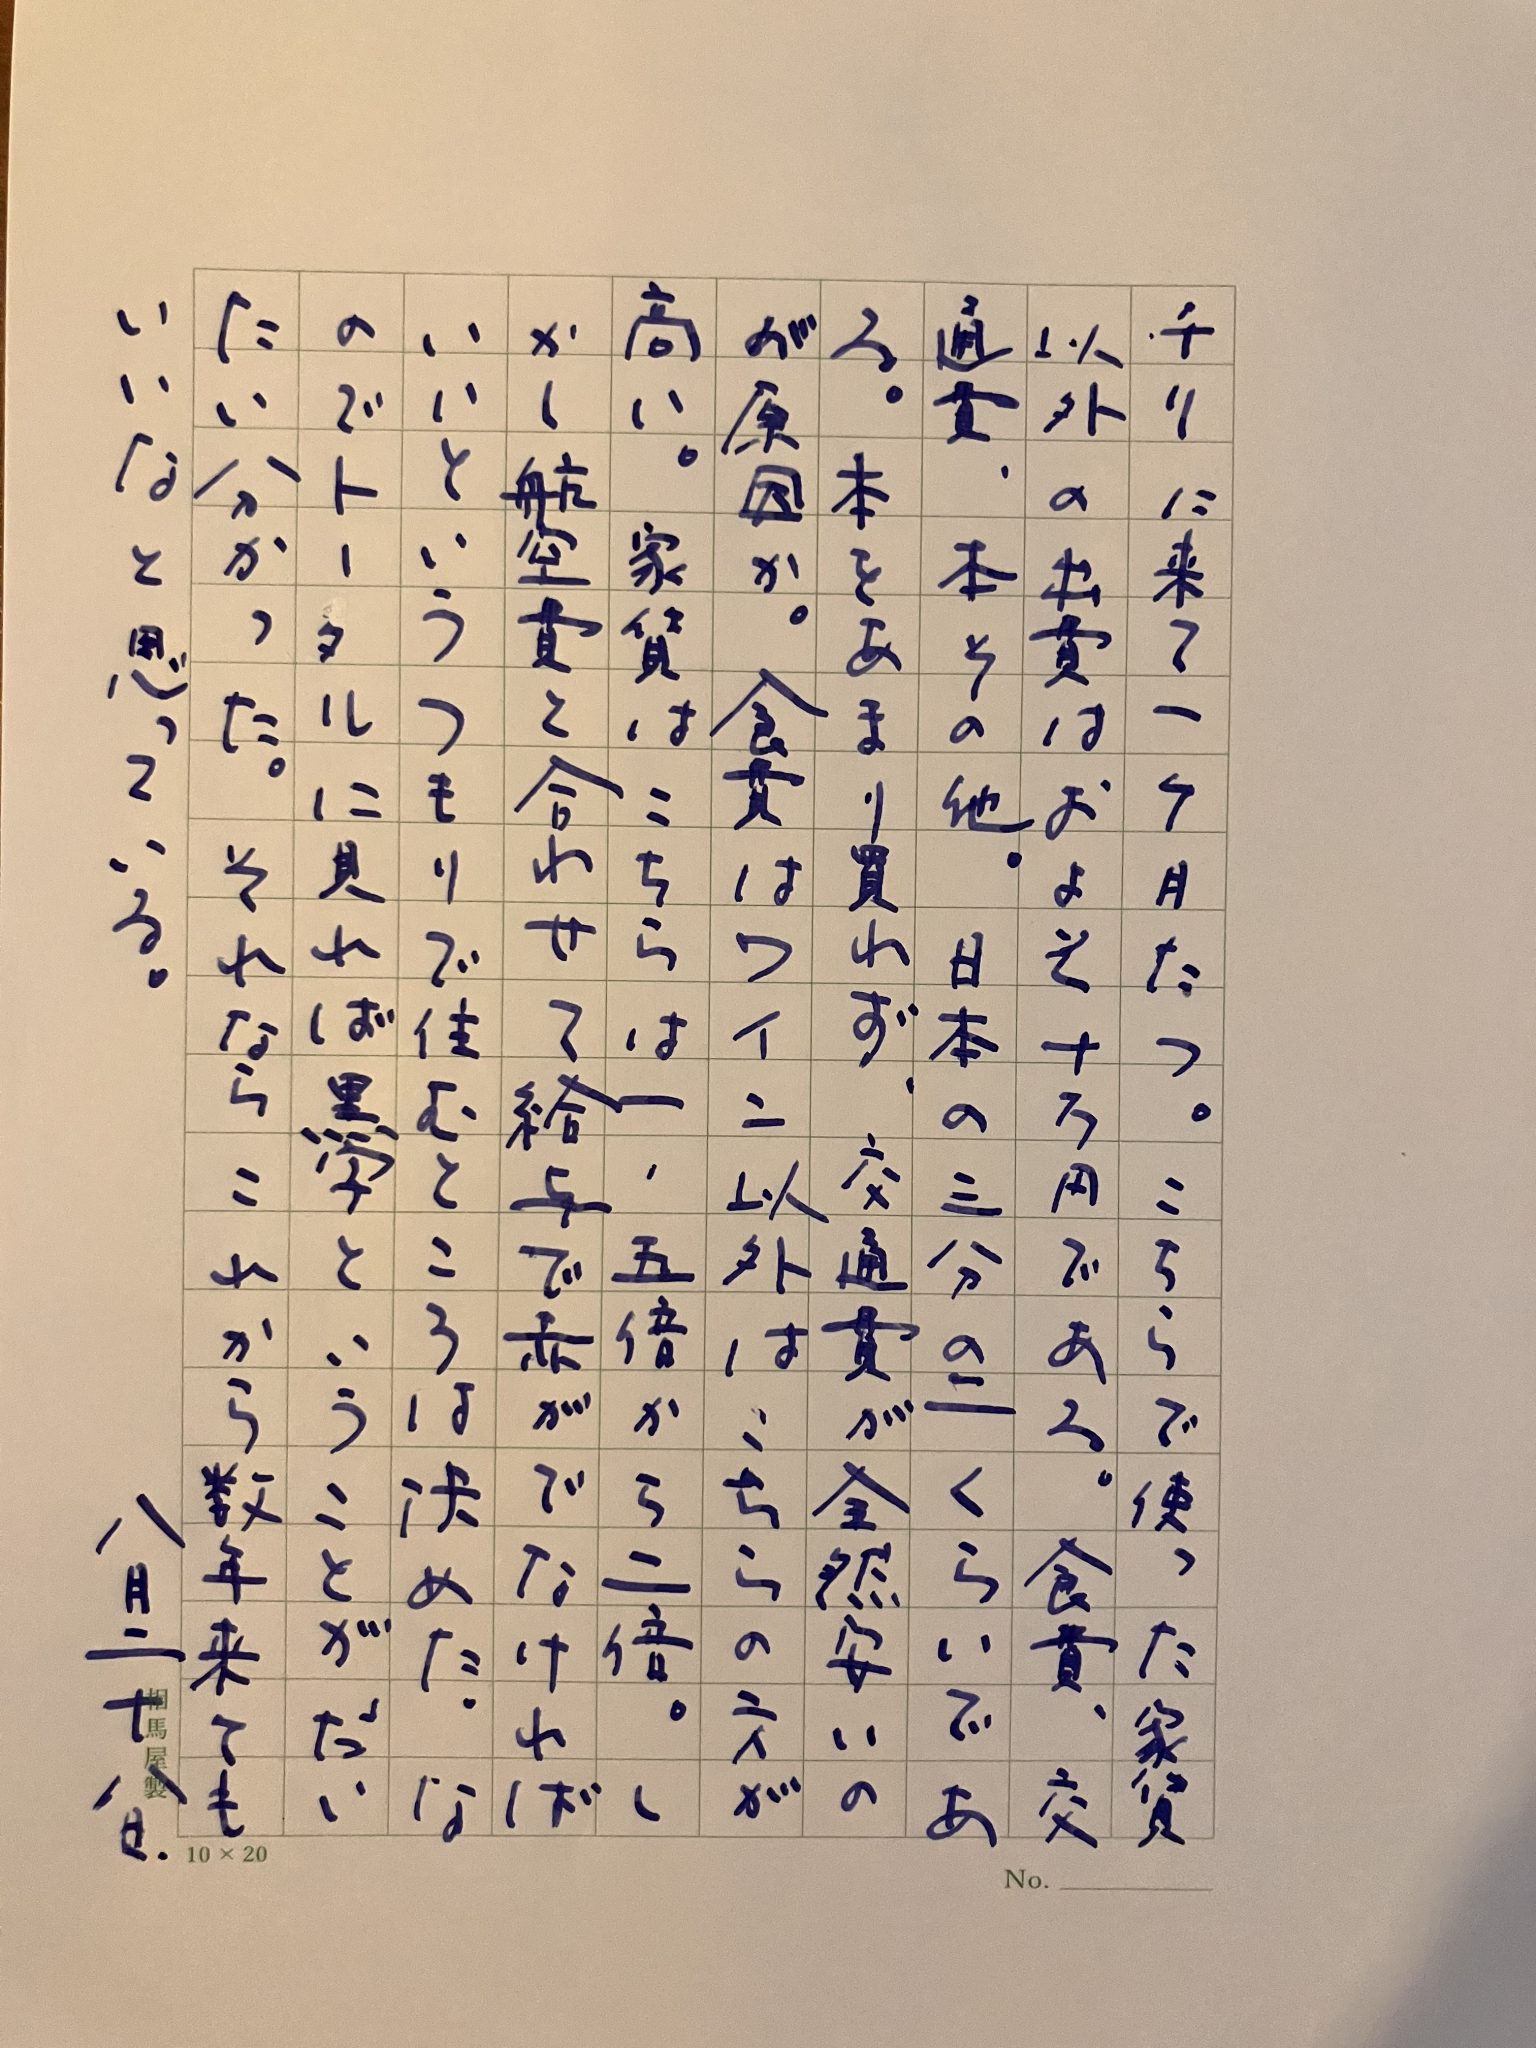 チリに来て一ケ月たつ。こちらで使った家賃
以外の出費はおよそ十万円である。食費、交
通費、本その他。日本の三分の二くらいであ
る。本をあまり買わず、交通費が全然安いの
が原因か。食費はワイン以外はこちらの方が
高い。家賃はこちらは一、五倍から二倍。し
かし航空費と合わせて給与で赤がでなければ
いいというつもりで住むところは決めた。な
のでトータルに見れば黒字ということがだい
たい分かった。それならこれから数年来ても
いいなと思っている。
八月二十八日.
相馬屋製
10 × 20
No.